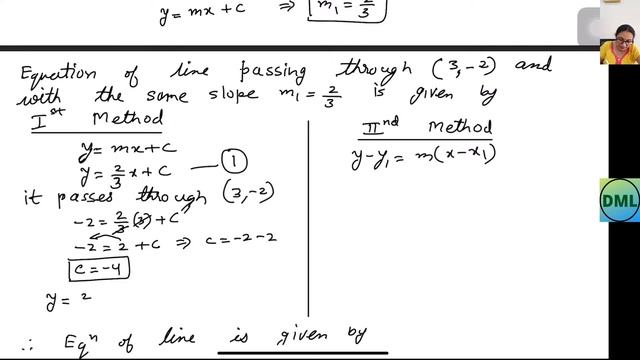 y = mx + c ⇒ m₁ = 2/3
Equation of line passing through (3, -2) and
with the same slope m₁ = 2/3 is given by
Iˢᵗ Method
y = mx + c
y = 2/3 x + c — ①
it passes through (3, -2)
-2 = 2/3 (3) + c
-2 = 2 + c ⇒ c = -2 - 2
c = -4
y = 2
IIⁿᵈ Method
y - y₁ = m(x - x₁)
∴ Eqⁿ of line is given by
DML